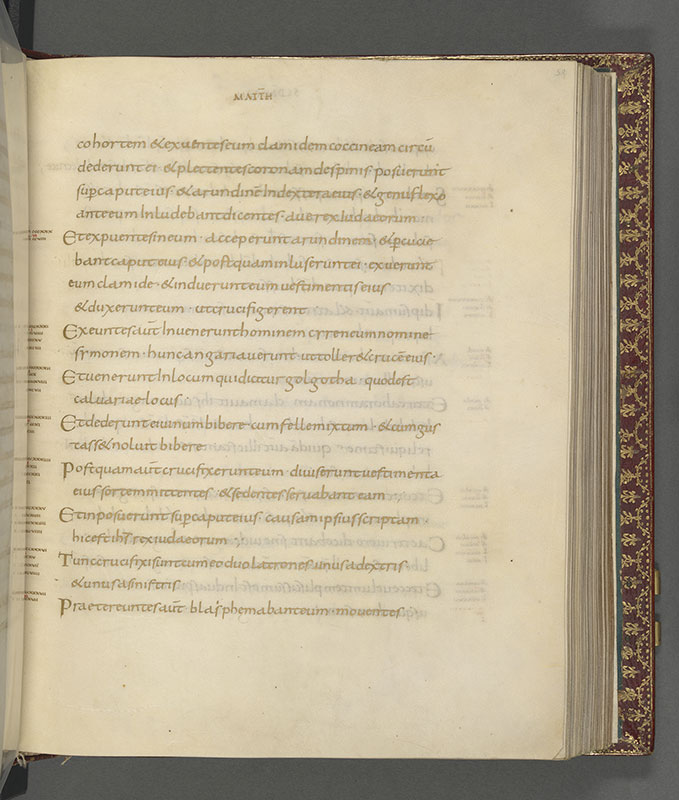 MATTH
cohortem & exuentes eum clamidem coccineam circū
dederunt ei · & plectentes coronam de spinis posuerunt
sup caput eius · & arundinē In dextera eius · & genu flexo
ante eum Inludebant dicentes · aue rex Iudaeorum ·
Et expuentes in eum · acceperunt arundinem · & pcucie
bant caput eius · & postquam inluserunt ei · exuerunt
eum clamide · & induerunt eum uestimentis eius
& duxerunt eum · ut crucifigerent
Exeuntes aūt Inuenerunt hominem cyreneum nomine
symonem · hunc angariauerunt ut toller& crucē eius ·
Et uenerunt In locum qui dicitur golgotha · quod est
caluariae locus ·
Et dederunt ei uinum bibere cum felle mixtum · & cum gus
tass& noluit bibere
Postquam aūt crucifixerunt eum · diuiserunt uestimenta
eius sortem mittentes · & sedentes seruabant eum ·
Et inposuerunt sup caput eius · causam ipsius scriptam
hic est ihs rex iudaeorum ;
Tunc crucifixi sunt cum eo duo latrones · unus a dextris ·
& unus a sinistris
Praetereuntes aūt blasphemabant eum · mouentes